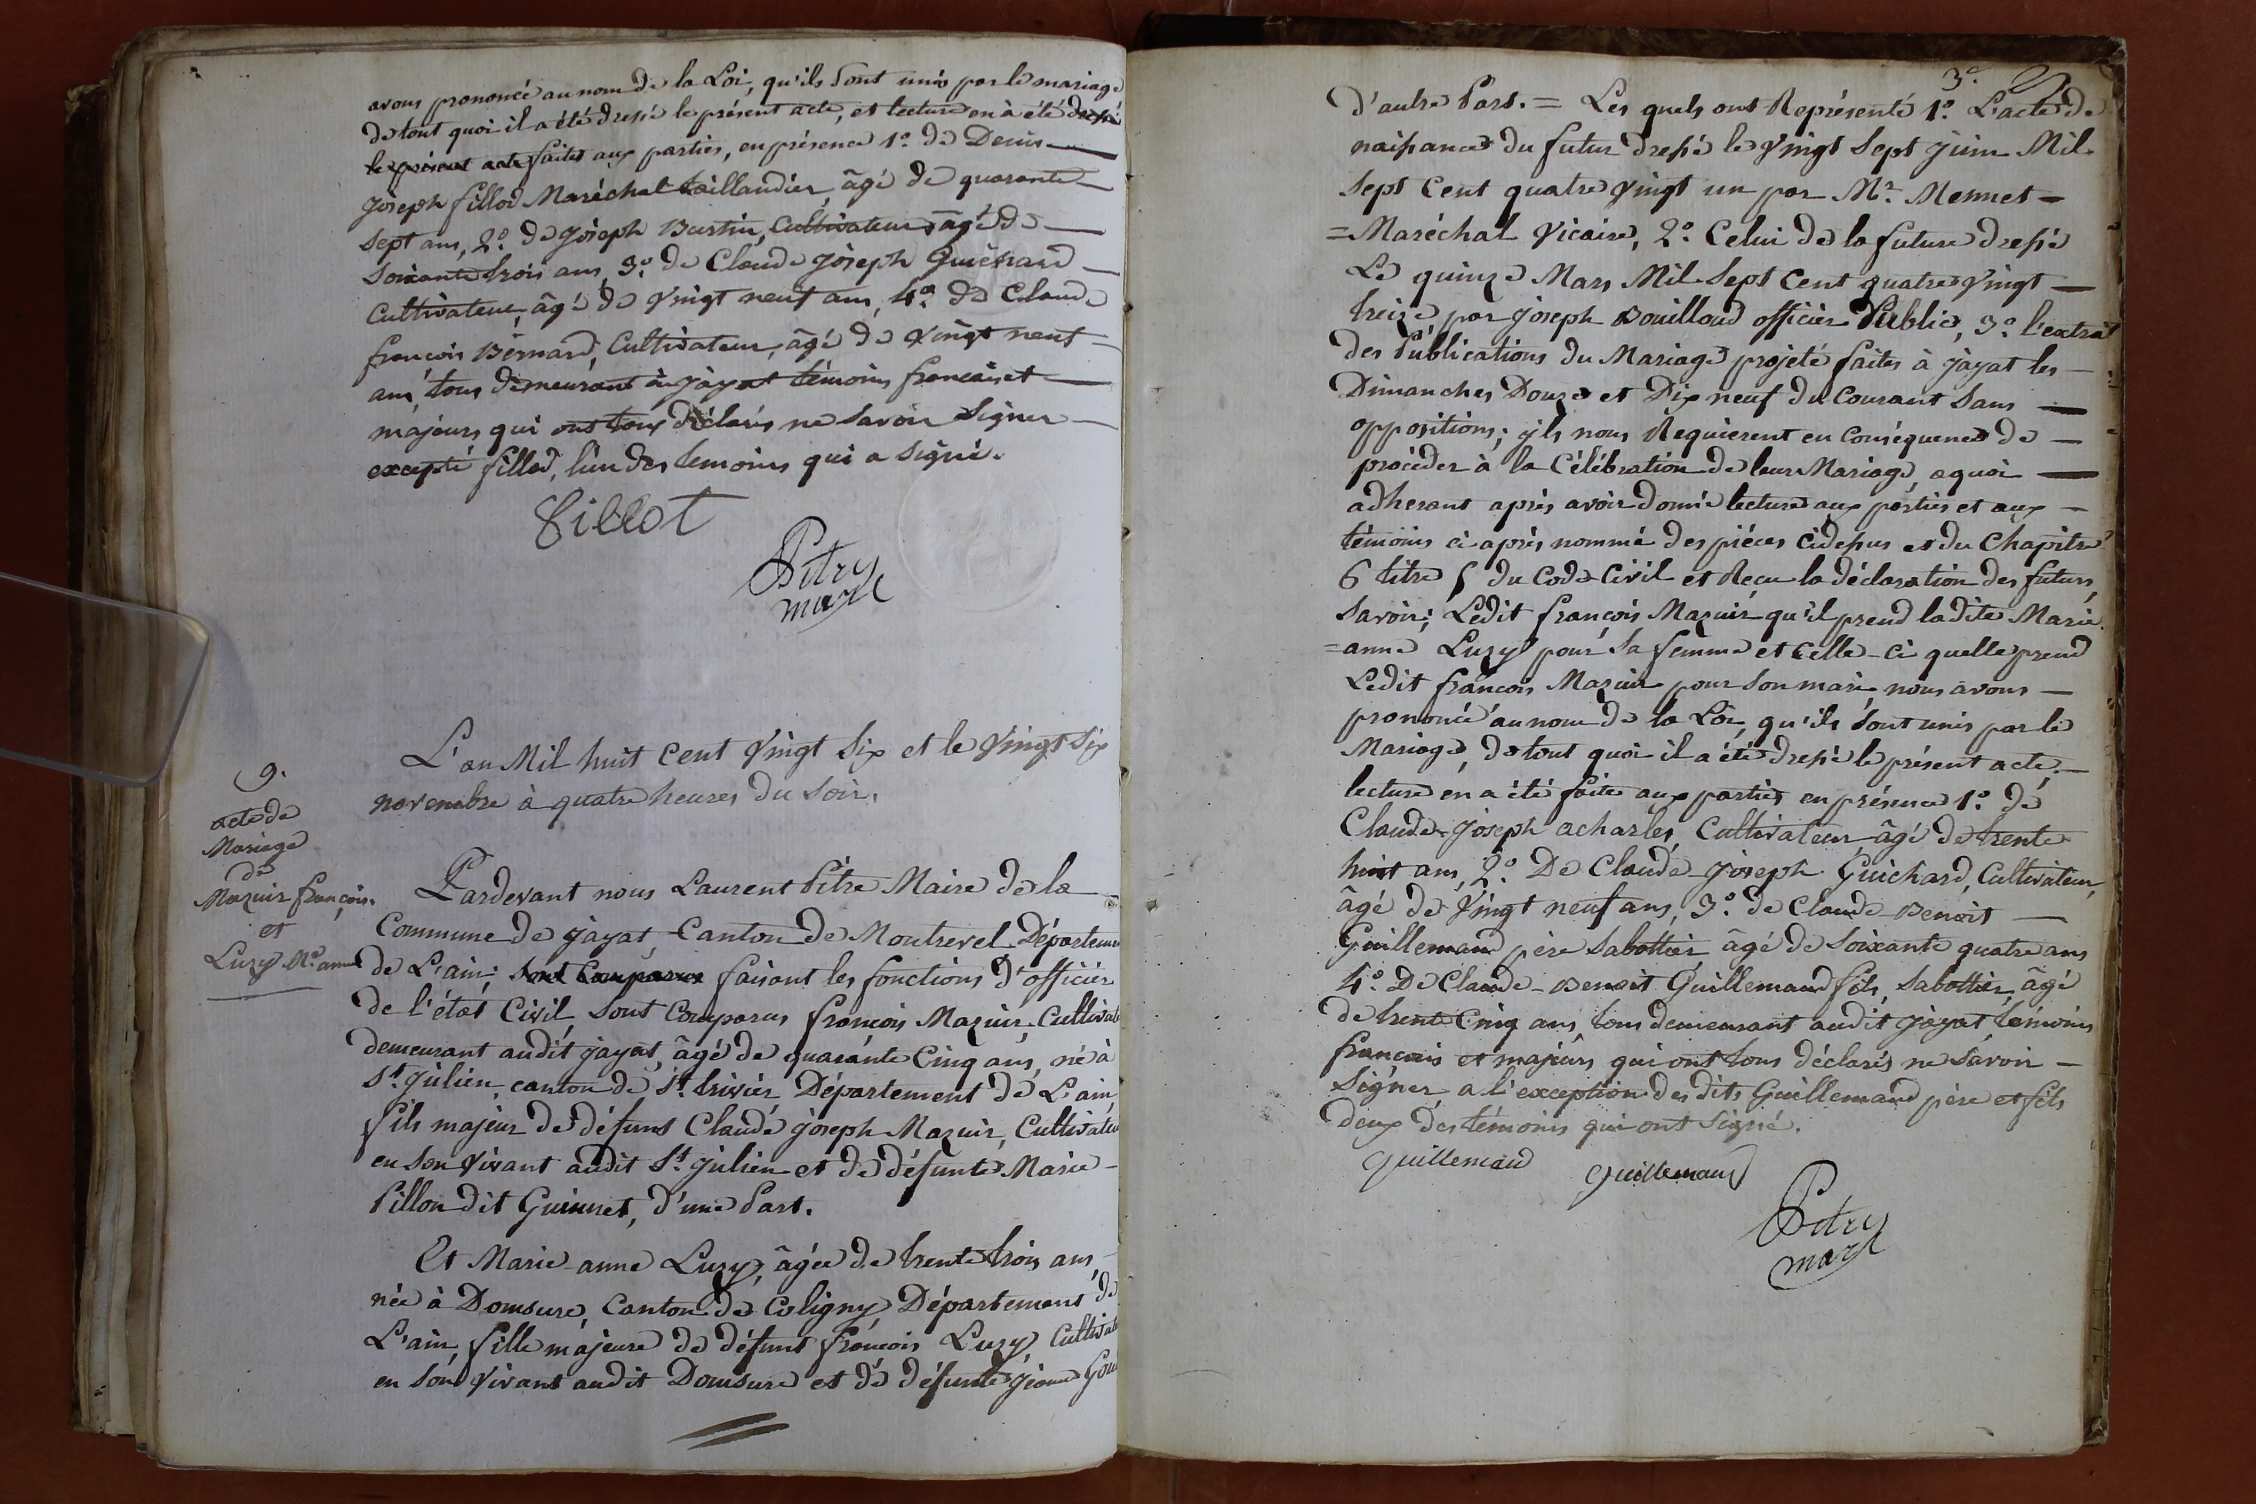 avons prononcé au nom de la Loi, qu'ils sont unis par le mariage
de tout quoi il a été dressé le présent acte, et lecture en à été dressé
le présent acte faites aux parties, en présence 1.º de Denis
Joseph fillod Maréchal taillandier, âgé de quarante
sept ans, 2.º de Joseph Bustin, Cultivateur, âgé de
soixante trois ans, 3.º de Claude Joseph Guichard
Cultivateur, âgé de Vingt neuf ans, 4.º de Claude
françois Bernard, Cultivateur, âgé de Vingt neuf
ans, tous demeurant à jayat témoins français et
majeurs qui ont tous déclarés ne savoir signer
excepté fillod, l'un des temoins qui a signé.
Fillot
Pitre
maire
9.
acte de
Mariage
de
Mazuir françois.
et
Luzy M.e anne
L'an Mil huit Cent Vingt Six et le Vingt Six
novembre à quatre heures du soir,
Pardevant nous Laurent Pitre Maire de la
Commune de jayat, Canton de Montrevel Départeme
de L'ain; sont Comparus faisant les fonctions d'officier
de l'état Civil, sont Comparus françois Mazuir, Cultivate
demeurant audit jayat, âgé de quarante Cinq ans, né à
S.t Julien, canton de S.t trivier Département de L'ain
fils majeur de défunt Claude joseph Mazuir, Cultivateu
en son vivant audit S.t julien et de défunte Marie
Pillon dit Guinnet, d'une Part.
Et Marie anne Luzy, âgée de trente trois ans,
née à Domsure, Canton de Coligny Département de
L'ain, fille majeure de défunt françois Luzy, Cultivate
en son Vivant audit Domsure et de défunte jeanne
3.e
d'autre Part. = Les quels ont Représenté 1.º L'acte de
naissance du futur dressé le Vingt Sept juin Mil
sept Cent quatre Vingt un par M.r Mennet
= Maréchal Vicaire, 2.º Celui de la future dressé
Le quinze Mars Mil Sept Cent quatre Vingt
treize par joseph Bouilloud officier Public, 3.º l'extrait
des Publications du Mariage projeté faites à jayat les
Dimanches Douze et Dix neuf du Courant sans
oppositions; ils nous Requierent en Conséquence de
procéder à la Célébration de leur Mariage, a quoi
adherant après avoir donné lecture aux parties et aux
témoins ci après nommé des pièces cidessus et du Chapitre
6 titre 5 du Code Civil et Reçu la déclaration des futurs,
savoir; Ledit françois Mazuir qu'il prend ladite Marie
= anne Luzy pour sa femme et Celle-Ci quelle prend
Ledit françois Mazuir pour son mari, nous avons
prononcé au nom de la Loi, qu'ils sont unis par le
Mariage, de tout quoi il a été dressé le présent acte.
lecture en a été faite aux parties en présence 1.º de
Claude-joseph acharles, Cultivateur, âgé de trente
huit ans, 2.º De Claude Joseph Guichard, Cultivateur,
âgé de Vingt neuf ans, 3.º de Claude Benoit
Guillemaud père Sabottier, âgé de Soixante quatre ans
4.º De Claude-Benoit Guillemaud fils, Sabottier, âgé
de trente Cinq ans, tous demeurant audit jayat, témoins
francais et majeurs qui ont tous déclarés ne savoir
signer, a l'exception des dits Guillemaud père et fils
deux des témoins qui ont signé.
Guillemaud Guillemaud
Pitre
maire